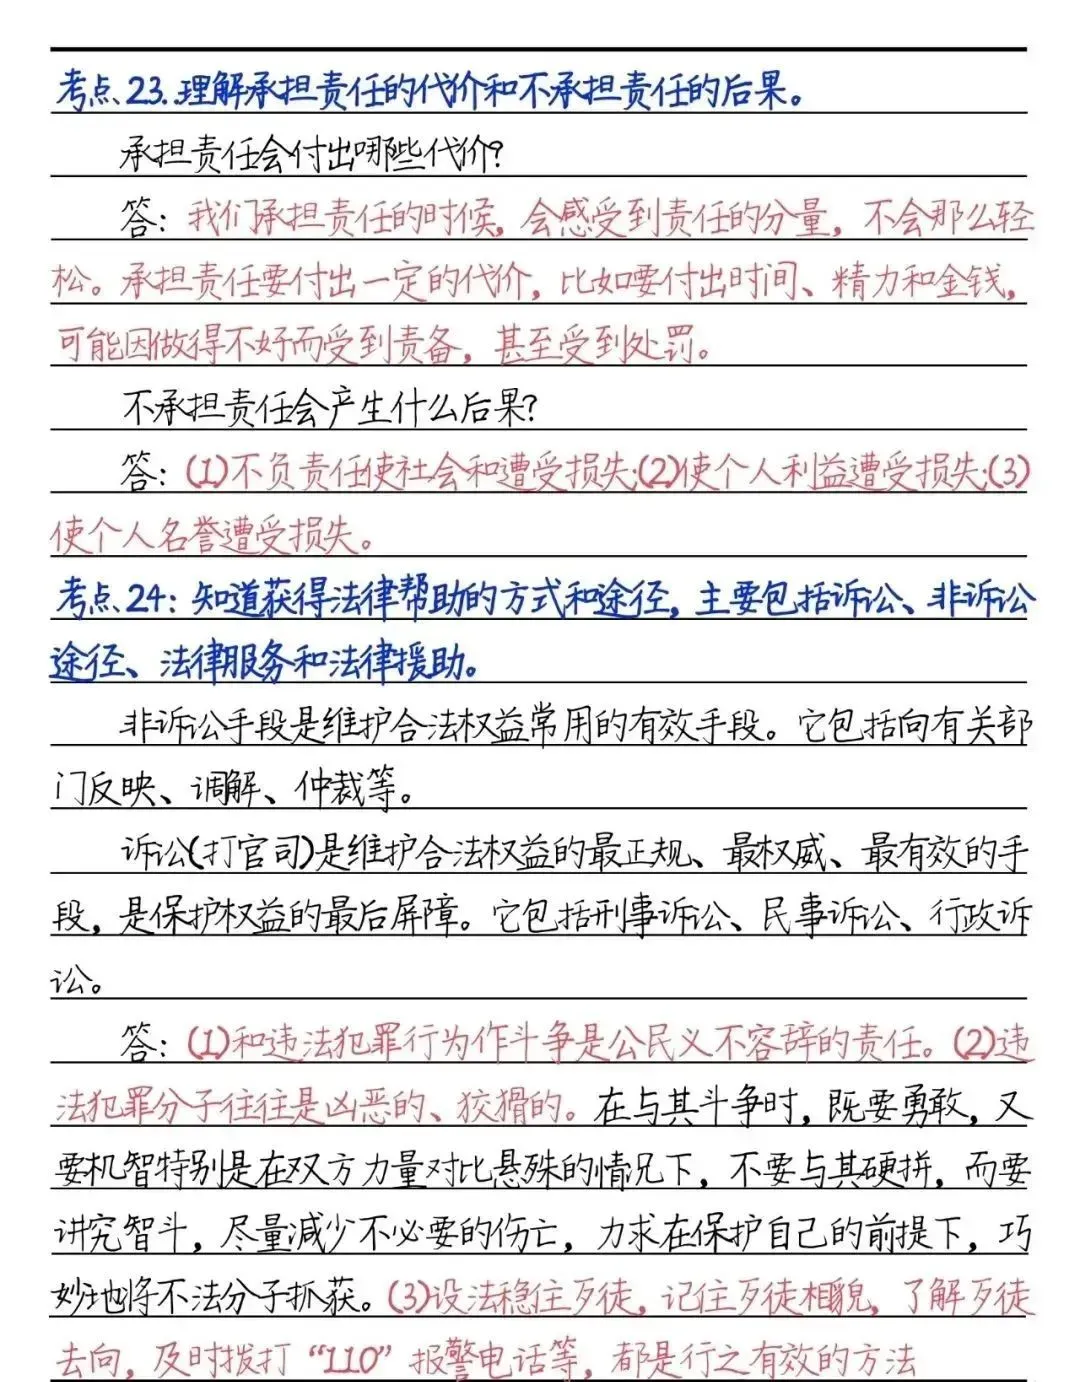 考点、23.理解承担责任的代价和不承担责任的后果。
承担责任会付出哪些代价?
答：我们承担责任的时候，会感受到责任的分量，不会那么轻
松。承担责任要付出一定的代价，比如要付出时间、精力和金钱，
可能因做得不好而受到责备，甚至受到处罚。
不承担责任会产生什么后果?
答：(1)不负责任使社会和遭受损失;(2)使个人利益遭受损失;(3)
使个人名誉遭受损失。
考点、24：知道获得法律帮助的方式和途径，主要包括诉讼、非诉讼
途径、法律服务和法律援助。
非诉讼手段是维护合法权益常用的有效手段。它包括向有关部
门反映、调解、仲裁等。
诉讼(打官司)是维护合法权益的最正规、最权威、最有效的手
段，是保护权益的最后屏障。它包括刑事诉讼、民事诉讼、行政诉
讼。
答：(1)和违法犯罪行为作斗争是公民义不容辞的责任。(2)违
法犯罪分子往往是凶恶的、狡猾的。在与其斗争时，既要勇敢，又
要机智特别是在双方力量对比悬殊的情况下，不要与其硬拼，而要
讲究智斗，尽量减少不必要的伤亡，力求在保护自己的前提下，巧
妙地将不法分子抓获。(3)设法稳住歹徒，记住歹徒相貌，了解歹徒
去向，及时拨打“110”报警电话等，都是行之有效的方法